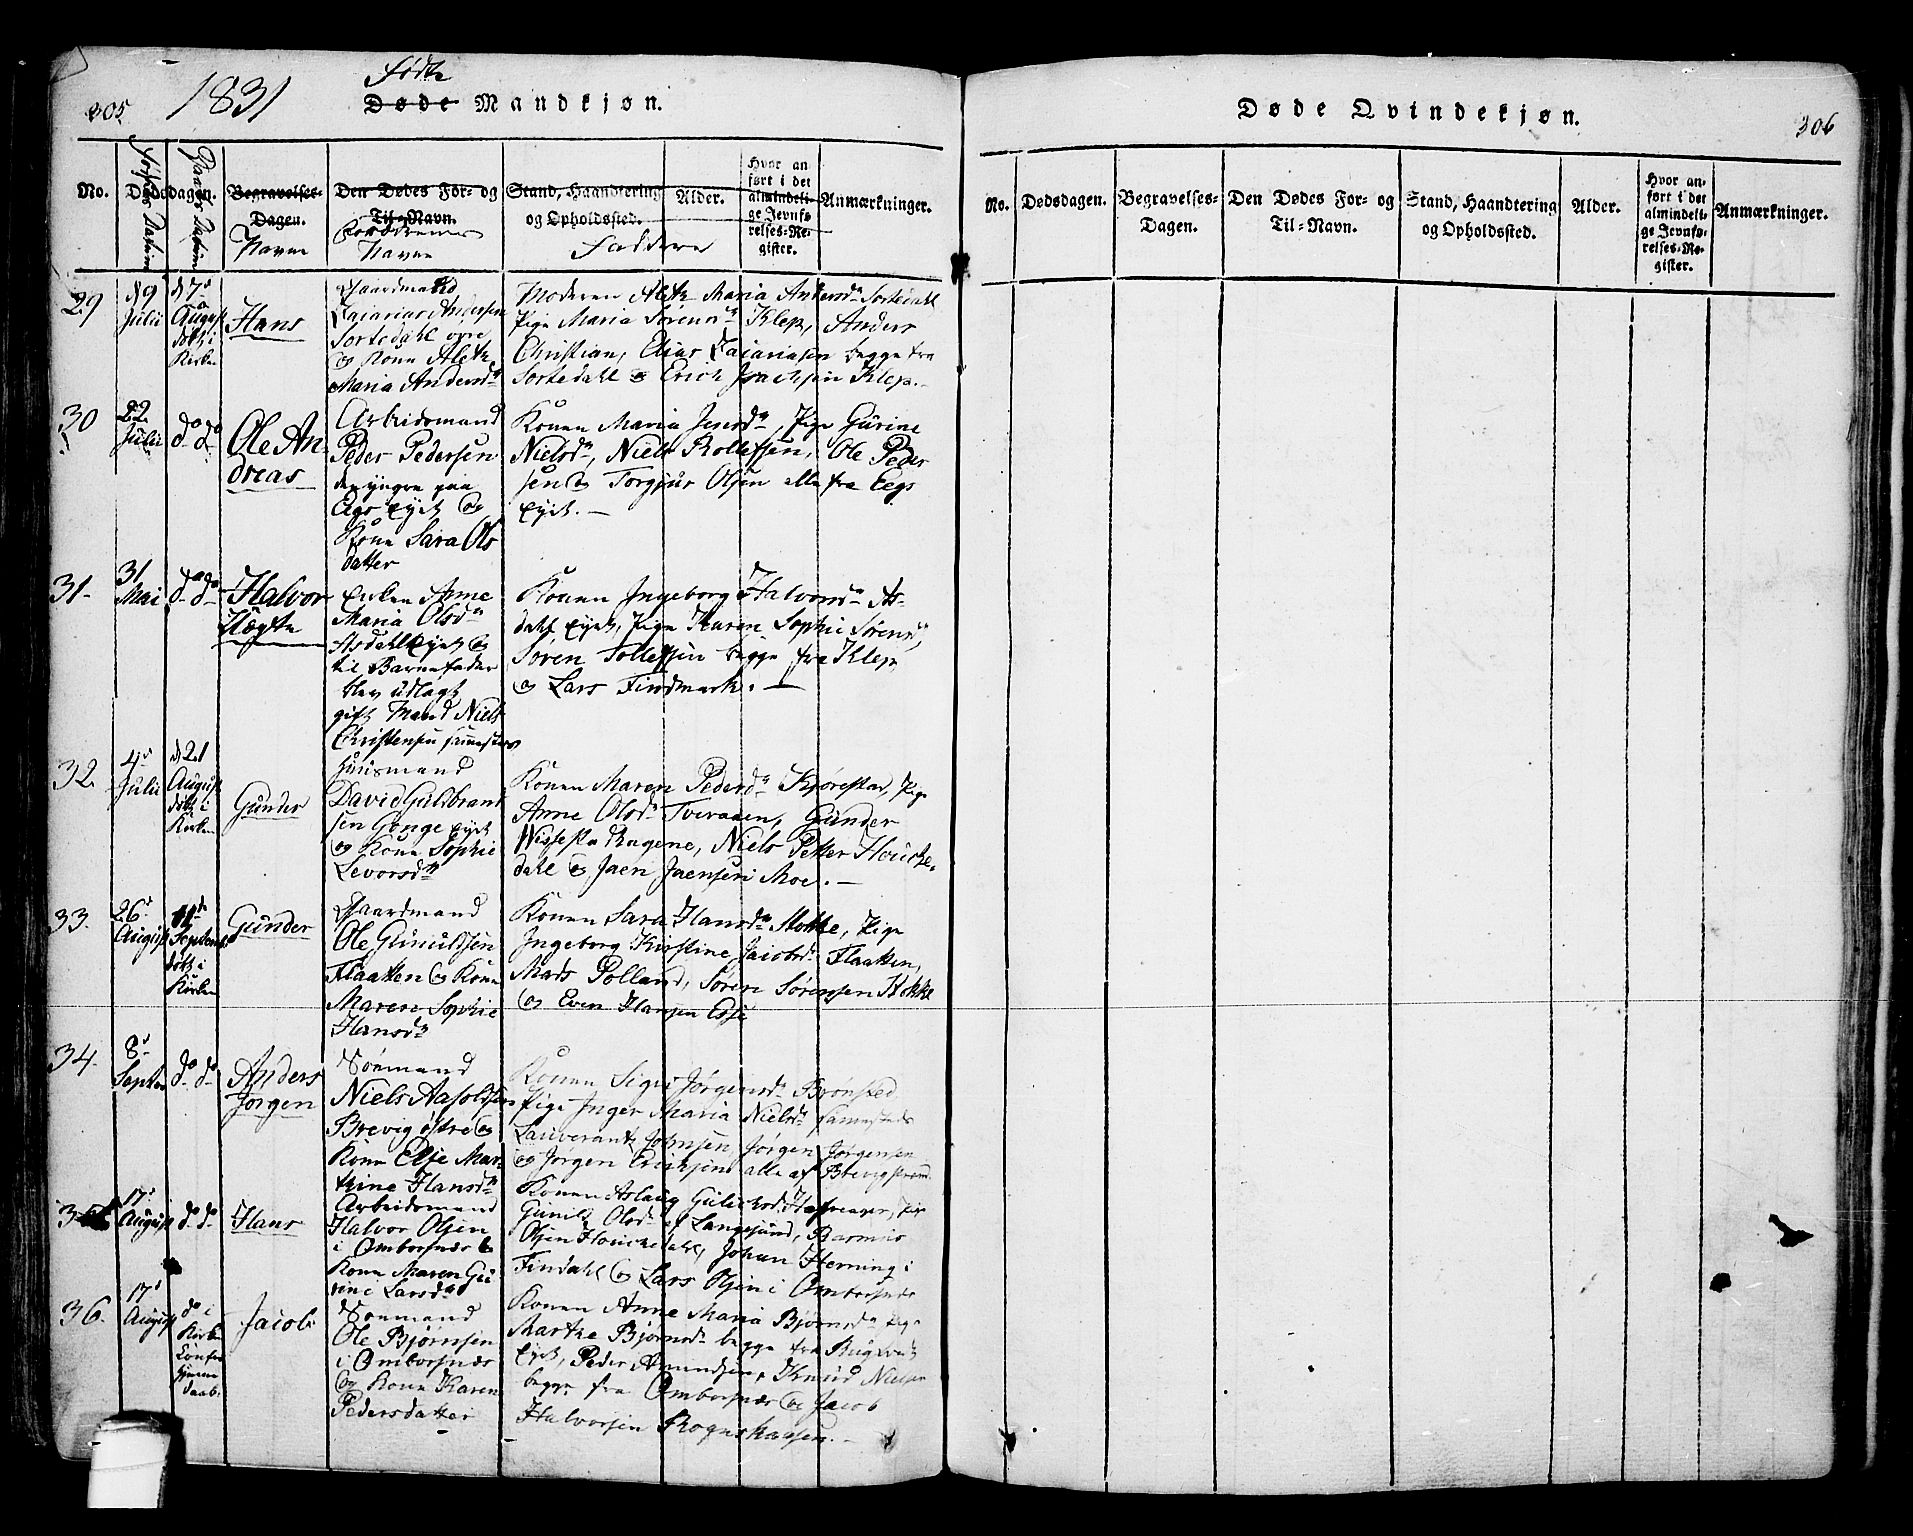 305.
1831
Fødte
Døde Mandkjøn.
No.
Dødsdagen.
Begravelses-
Dagen.
Navne
Den Dødes For- og
Til-Navn.
Forældrenes
Navne
Stand, Haandtering
og Opholdssted.
Faddere
Alder.
Hvor an
ført i det
almindeli-
ge Jevnfø-
relses-Re-
gister.
Anmærkninger.
29
d 9
Julii
d 7d
August
døbt i
Kirken
Hans
Gaardmand
Zacarias Andersen
Sortedahl øvre
og Kone Aleth
Maria Andersdr
Moderen Aleth Maria Andersdr Sortedahl
Pige Maria Sørensdr Klep, Anders
Christian, Elias Zacariasen begge fra
Sortedahl og Erich Isachsen Klep.-
30
22
Julii
do do
Ole An-
dreas
Arbeidsmand
Peder Pedersen
den yngre paa
Eegs Eyet og
Kone Sara Ols
datter
Konen Maria Jensdr, Pige Gurine
Nielsdr, Niels Rollefsen, Ole Peder
sen og Torgjur Olsen alle fra Eegs
Eyet.-
31-
31
Mai
do do
Halvor
Uægte
Enken Anne
Maria Olsdr
Asdahl Eyet og
til Barnefader
blev udlagt
gift Mand Niels
Christensen sammesteds
Konen Ingeborg Halvorsdr As-
dahl Eyet, Pige Karen Sophie Sørensdr,
Søren Tollefsen begge fra Klep,
og Lars Findmark.-
32.
4d
Julii
d 21
August
døbt i
Kirken
Gunder
Huusmand
David Guldbrand
sen Gonge Eyet
og Kone Sophie
Levorsdr
Konen Maren Pedersdr Kjørestad, Pige
Anne Olsdr Tveraaen, Gunder
Nissesta Hagene, Niels Petter Houcke-
dahl og Jaen Jaensen Moe.-
33.
26d
August
11d
Septemb
døbt i
Kirken
Gunder
Gaardmand
Ole Gunuldsen
Flaatten og Kone
Maren Sophie
Hansdr
Konen Sara Hansdr Stokke, Pige
Ingeborg Kirstine Jacobsdr Flaatten,
Mads Polland, Søren Sørensen Stokke
og Even Hansen
34.
8d
Septem
do do
Anders
Jørgen
Sømand
Niels Aasoldsen
Brevig østre og
Kone Else Mar-
thine Hansdr
Konen Sigri Jørgensdr Brønsted
Pige Inger Maria Nielsdr sammesteds
Lauverants Johnsen, Jørgen Jørgensen
og Jørgen Erichsen alle af Brevigstrand
17d
August
do do
Hans
Arbeidsmand
Halvor Olsen
i Omborsnæs og
Kone Maren Gu-
rine Larsdr
Konen Aslaug Gulichsdr Pige
Gunild Olsdr af Langesund, Rasmus
Olsen Houckedahl, Johan Fleming i
Findahl og Lars Olsen i Omborsnæs
36.
17d
August
do i
Kirken
Jacob
Sømand
Ole Bjørnsen
i Omborsnæs
og Kone Karen
Pedersdatter
Konen Anne Maria Bjørnsdr Pige
Marthe Bjørnsdr begge fra
Eyet, Peder Amundsen, Knud Nielsen
begge fra Omborsnæs og Jacob
Halvorsen Rognskaasen.-
Døde Qvindekjøn.
306
No.
Dødsdagen.
Begravelses-
Dagen.
Den Dødes For- og
Til-Navn.
Stand, Haandtering
og Opholdssted.
Alder.
Hvor an-
ført i det
almindeli-
ge Jevnfø-
relses-Re-
gister.
Anmærkninger.